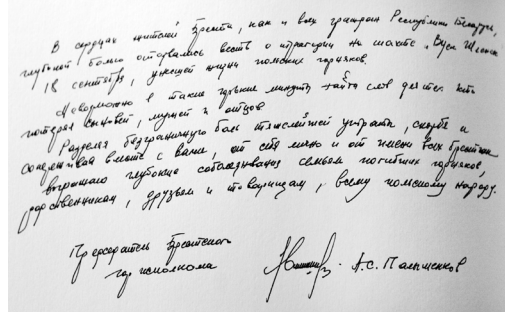 В сердцах жителей Бреста, как и всех граждан Республики Беларусь,
глубокой болью отозвалась весть о трагедии на шахте „Вуек-Шлёнск"
18 сентября, унесшей жизни польских горняков.
Невозможно в такие горькие минуты найти слов для тех, кто
потерял сыновей, мужей и отцов.
Разделяя безграничную боль тяжелейшей утраты, скорбя и
сопереживая вместе с вами, от себя лично и от имени всех брестчан
выражаю глубокие соболезнования семьям погибших горняков,
родственникам, друзьям и товарищам, всему польскому народу.
Председатель Брестского
горисполкома
А.С. Палышенков